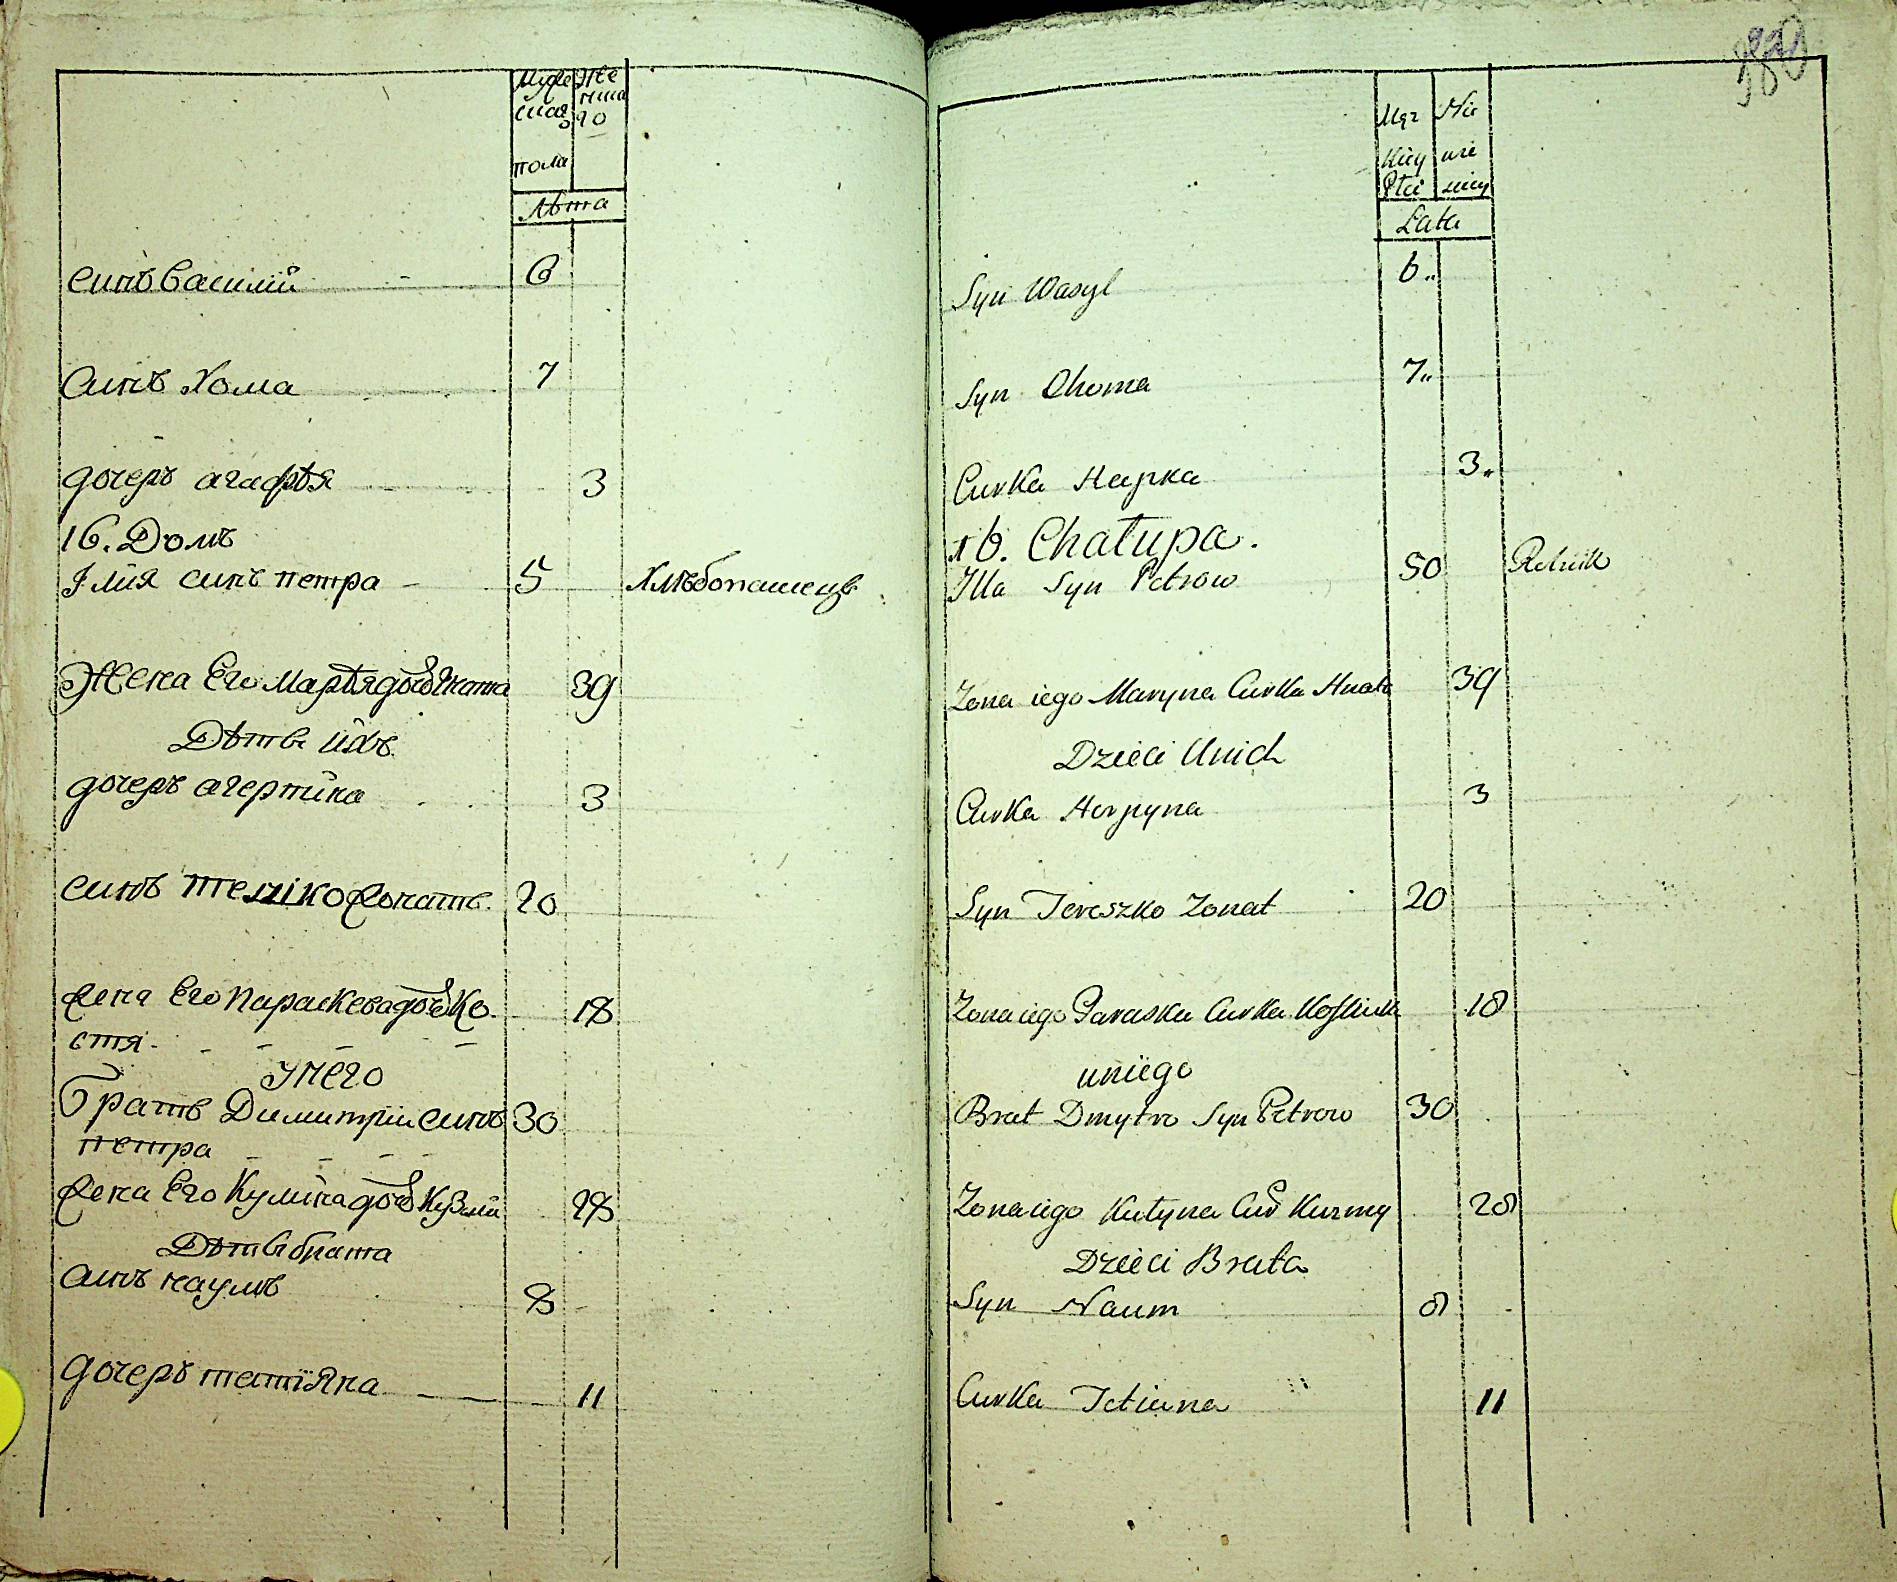 Муже Же
ска нска
го го
пола
Лѣта
синъ Василiй 6
Синъ Хома 7
дочеръ агафѣя 3
16. Домъ
Iлiя синъ петра 5 Хлѣбопашецъ
Жена Его Марѣя доч Игната 39
Дѣти ихъ
дочеръ агерпина 3
синъ тешко Жонатъ 20
Жена Его Параскева доч Ко-
стя 18
У него
Братъ Димитрiй синъ 30
петра
Жена Его Кулина доч Кузми 28
Дѣти брата
Синъ наумъ 8
дочеръ татiяна 11
380
Męz Nie
kiey wie
Płci sciey
Lata
Syn Wasyl 6
Syn Choma 7
Curka Hapka 3
16. Chałupa.
Illa Syn Petrow 50 Rolnik
Zona iego Maryna Curka Hnata 39
Dzieci Unich
Curka Horpyna 3
Syn Tereszko Zonat 20
Zona iego Paraska Curka 18
uniego
Brat Dmytro Syn Petrow 30
Zona iego Kulyna Cur Kuzmy 28
Dzieci Brata
Syn Naum 8
Curka Tetiana 11